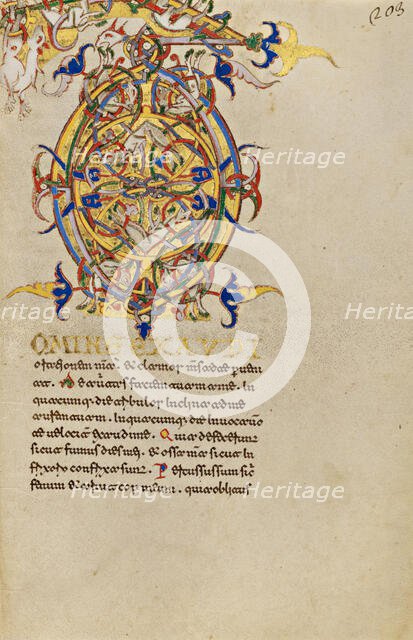 203
OMINE EXAUDI
orationem meā & clamor meus ad te perueni
at . Ne auertas faciem tuam a me . In
quacumque die tribulor Inclina ad me
aurem tuam . In quacumque die Inuocauero
te uelociter exaudi me . Quia defecerunt
sicut fumus dies mei & ossa mea sicut In
frixorio confrixa sunt . Percussus sum sic̄
fenum & aruit cor meum . quia oblitus
Heritage Heritage
Images Images
Heritage Heritage
Images Images
Heritage Heritage
Images Images